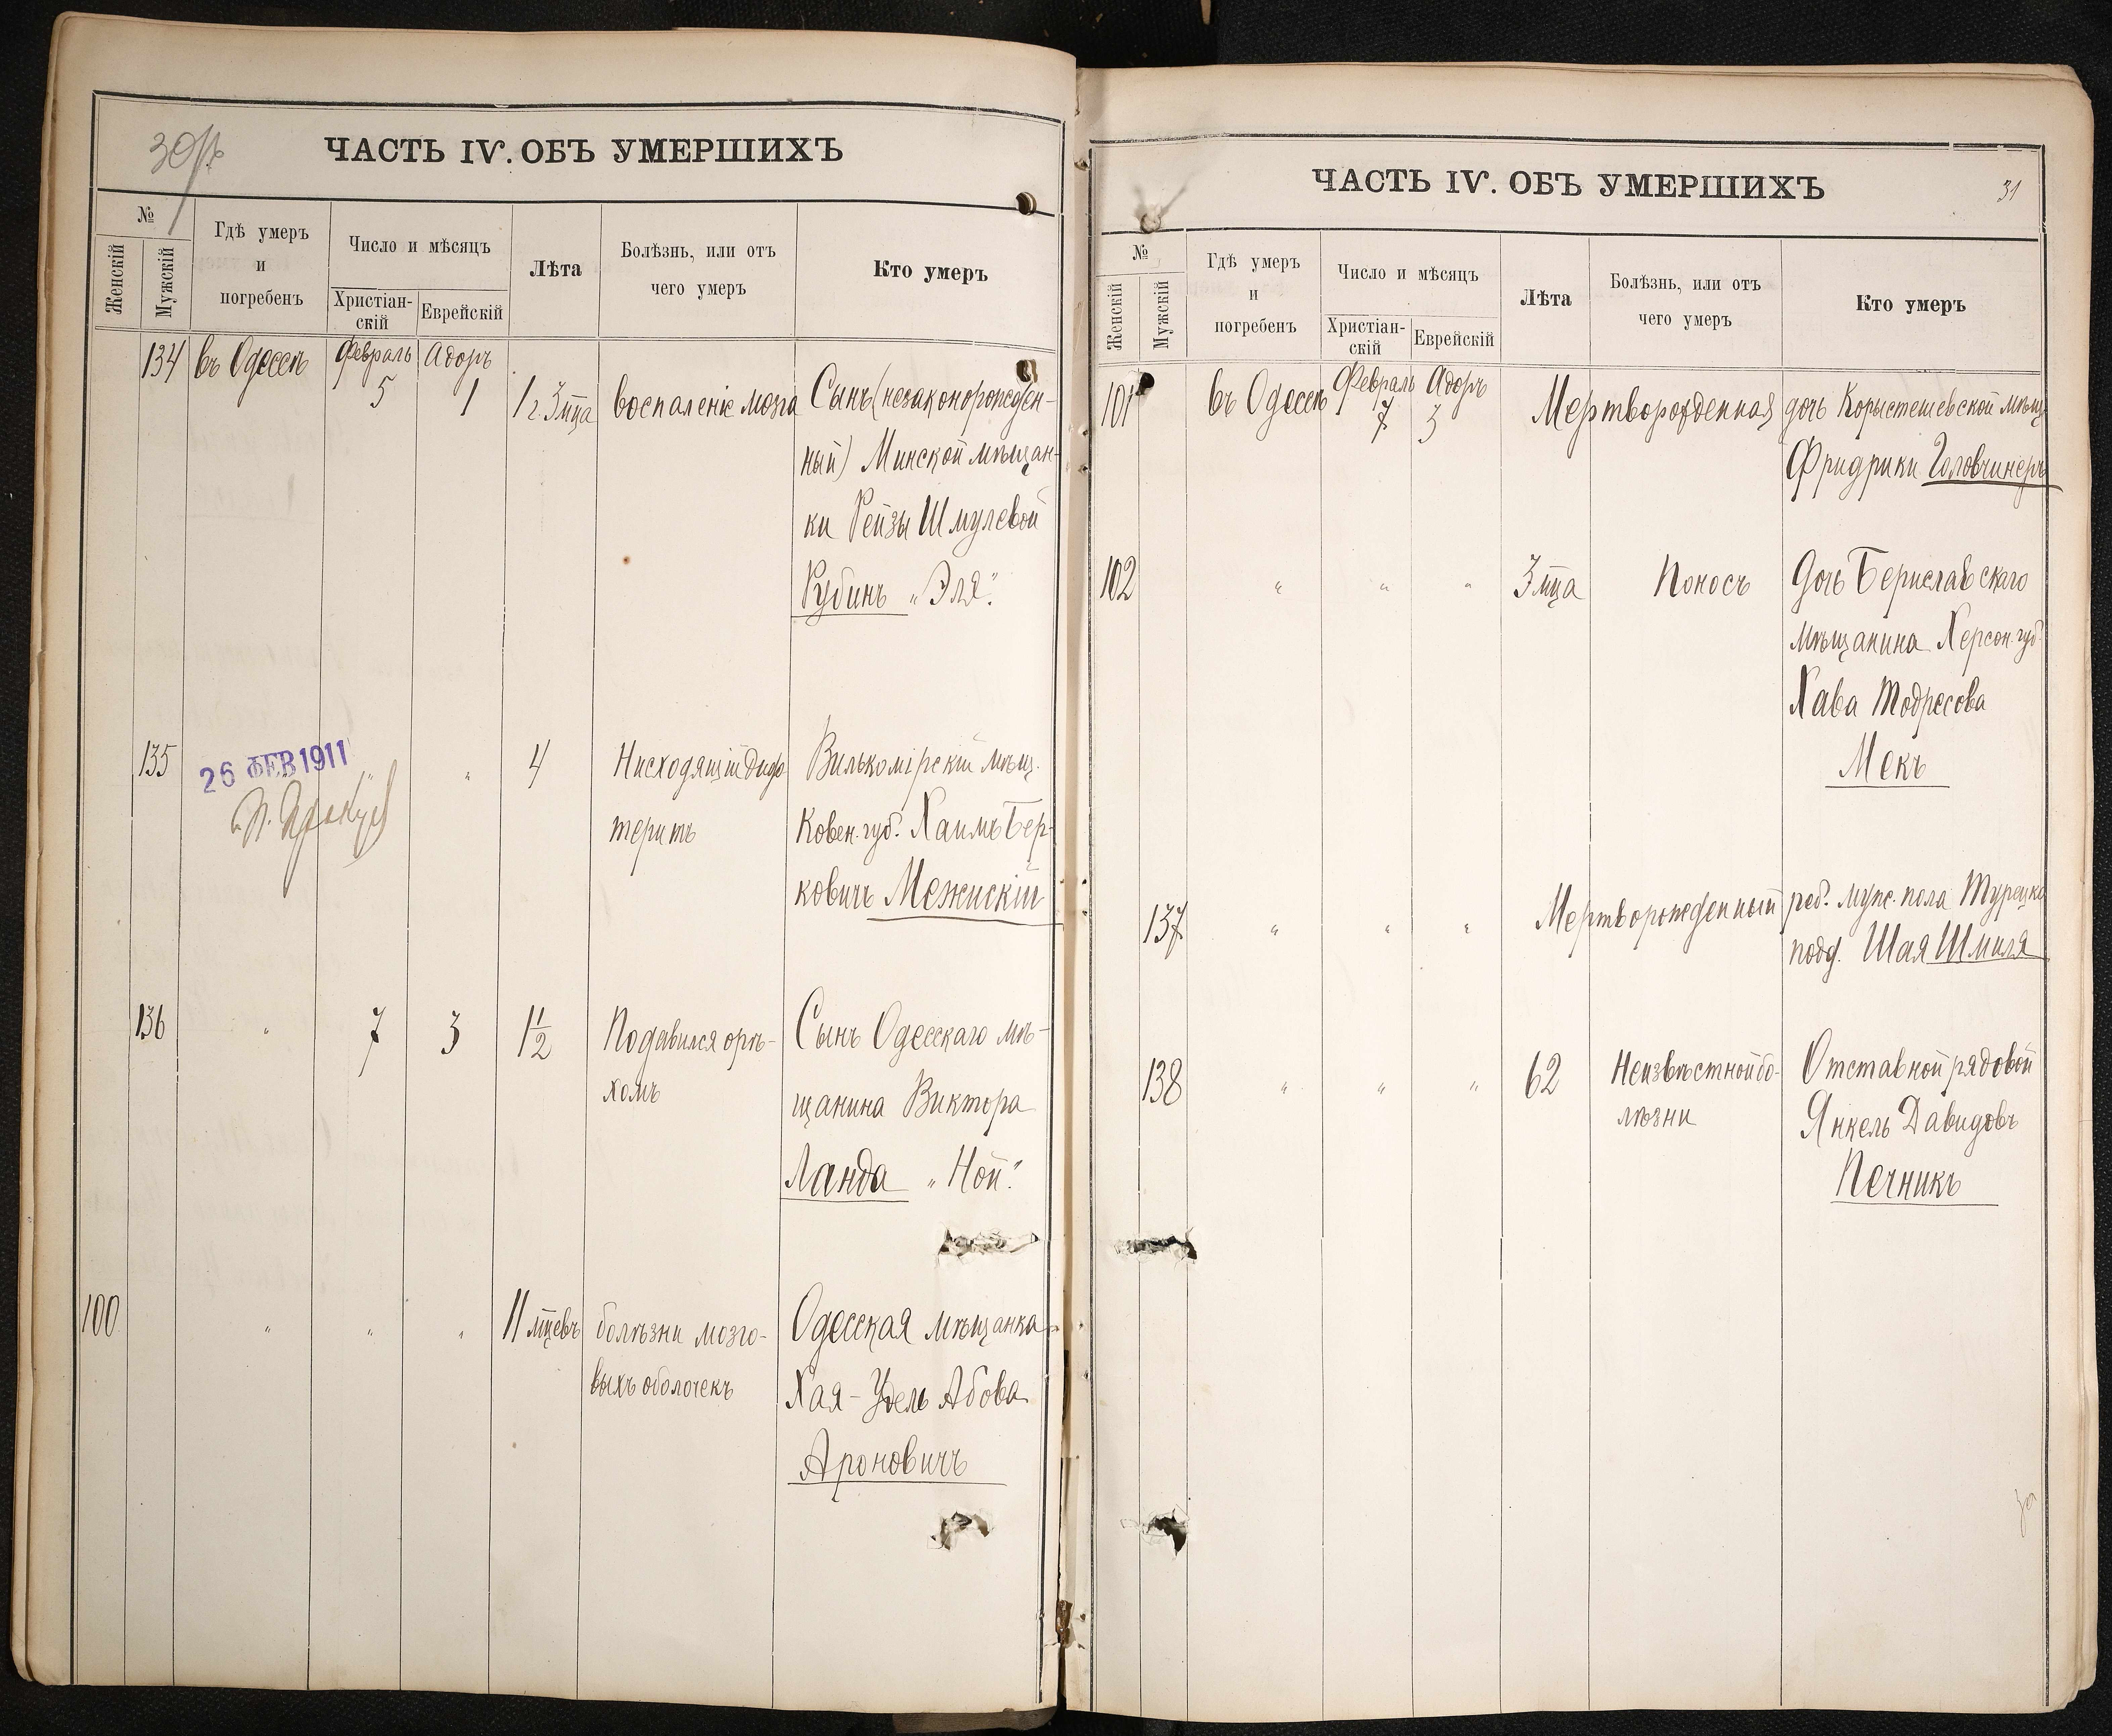 30
ЧАСТЬ IV. ОБЪ УМЕРШИХЪ
№
Женскій
Мужскій
Гдѣ умеръ
и
погребенъ
Число и мѣсяцъ
Христіан-
скій
Еврейскій
Лѣта
Болѣзнь, или отъ
чего умеръ
Кто умеръ
134 въ Одессѣ Февраль Адоръ
5 1 1 г. 3 мца воспаленіе мозга Сынъ (незаконорожден-
ный) Минской мѣщан-
ки Рейзы Шмулевой
Рубинъ „Эля".
135 26 ФЕВ 1911 „ „ 4 Нисходящій диф- Вилькомірскій мѣщ.
теритъ Ковен. губ. Хаимъ Бер-
ковичъ Межискій
136 „ 7 3 1 1/2 Подавился орѣ- Сынъ Одесскаго мѣ-
хомъ щанина Виктора
Ланда „Ной".
100 „ „ „ 11 мцевъ болѣзни мозго- Одесская мѣщанка
выхъ оболочекъ Хая-Удель Абова
Ароновичъ
ЧАСТЬ IV. ОБЪ УМЕРШИХЪ
31
№
Женскій
Мужскій
Гдѣ умеръ
и
погребенъ
Число и мѣсяцъ
Христіан-
скій
Еврейскій
Лѣта
Болѣзнь, или отъ
чего умеръ
Кто умеръ
101 въ Одессѣ Февраль Адоръ
7 3 Мертворожденная дочь Корыстешевской мѣщ
Фридрики Головчинеръ
102 „ „ „ 3 мца Поносъ Дочь Бериславскаго
мѣщанина Херсон. губ.
Хава Тодресова
Мекъ
137 „ „ „ Мертворожденный реб. муж. пола Турецко
подд. Шая Шмиля
138 „ „ „ 62 Неизвѣстной бо- Отставной рядовой
лѣзни Янкель Давидовъ
Печникъ